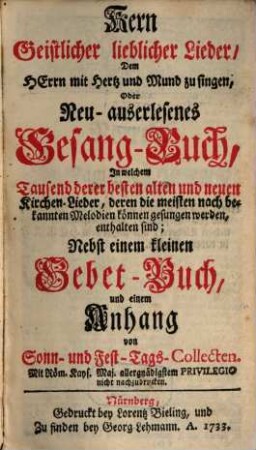 Kern
Geistlicher lieblicher Lieder,
Dem
HErrn mit Hertz und Mund zu singen,
Oder
Neu-auserlesenes
Gesang-Buch,
In welchem
Tausend derer besten alten und neuen
Kirchen-Lieder, deren die meisten nach be-
kannten Melodien können gesungen werden,
enthalten sind;
Nebst einem kleinen
Gebet-Buch,
und einem
Anhang
von
Sonn- und Fest-Tags-Collecten.
Mit Röm. Kays. Maj. allergnädigstem PRIVILEGIO
nicht nachzudrucken.
Nürnberg,
Gedruckt bey Lorentz Bieling, und
Zu finden bey Georg Lehmann. A. 1733.